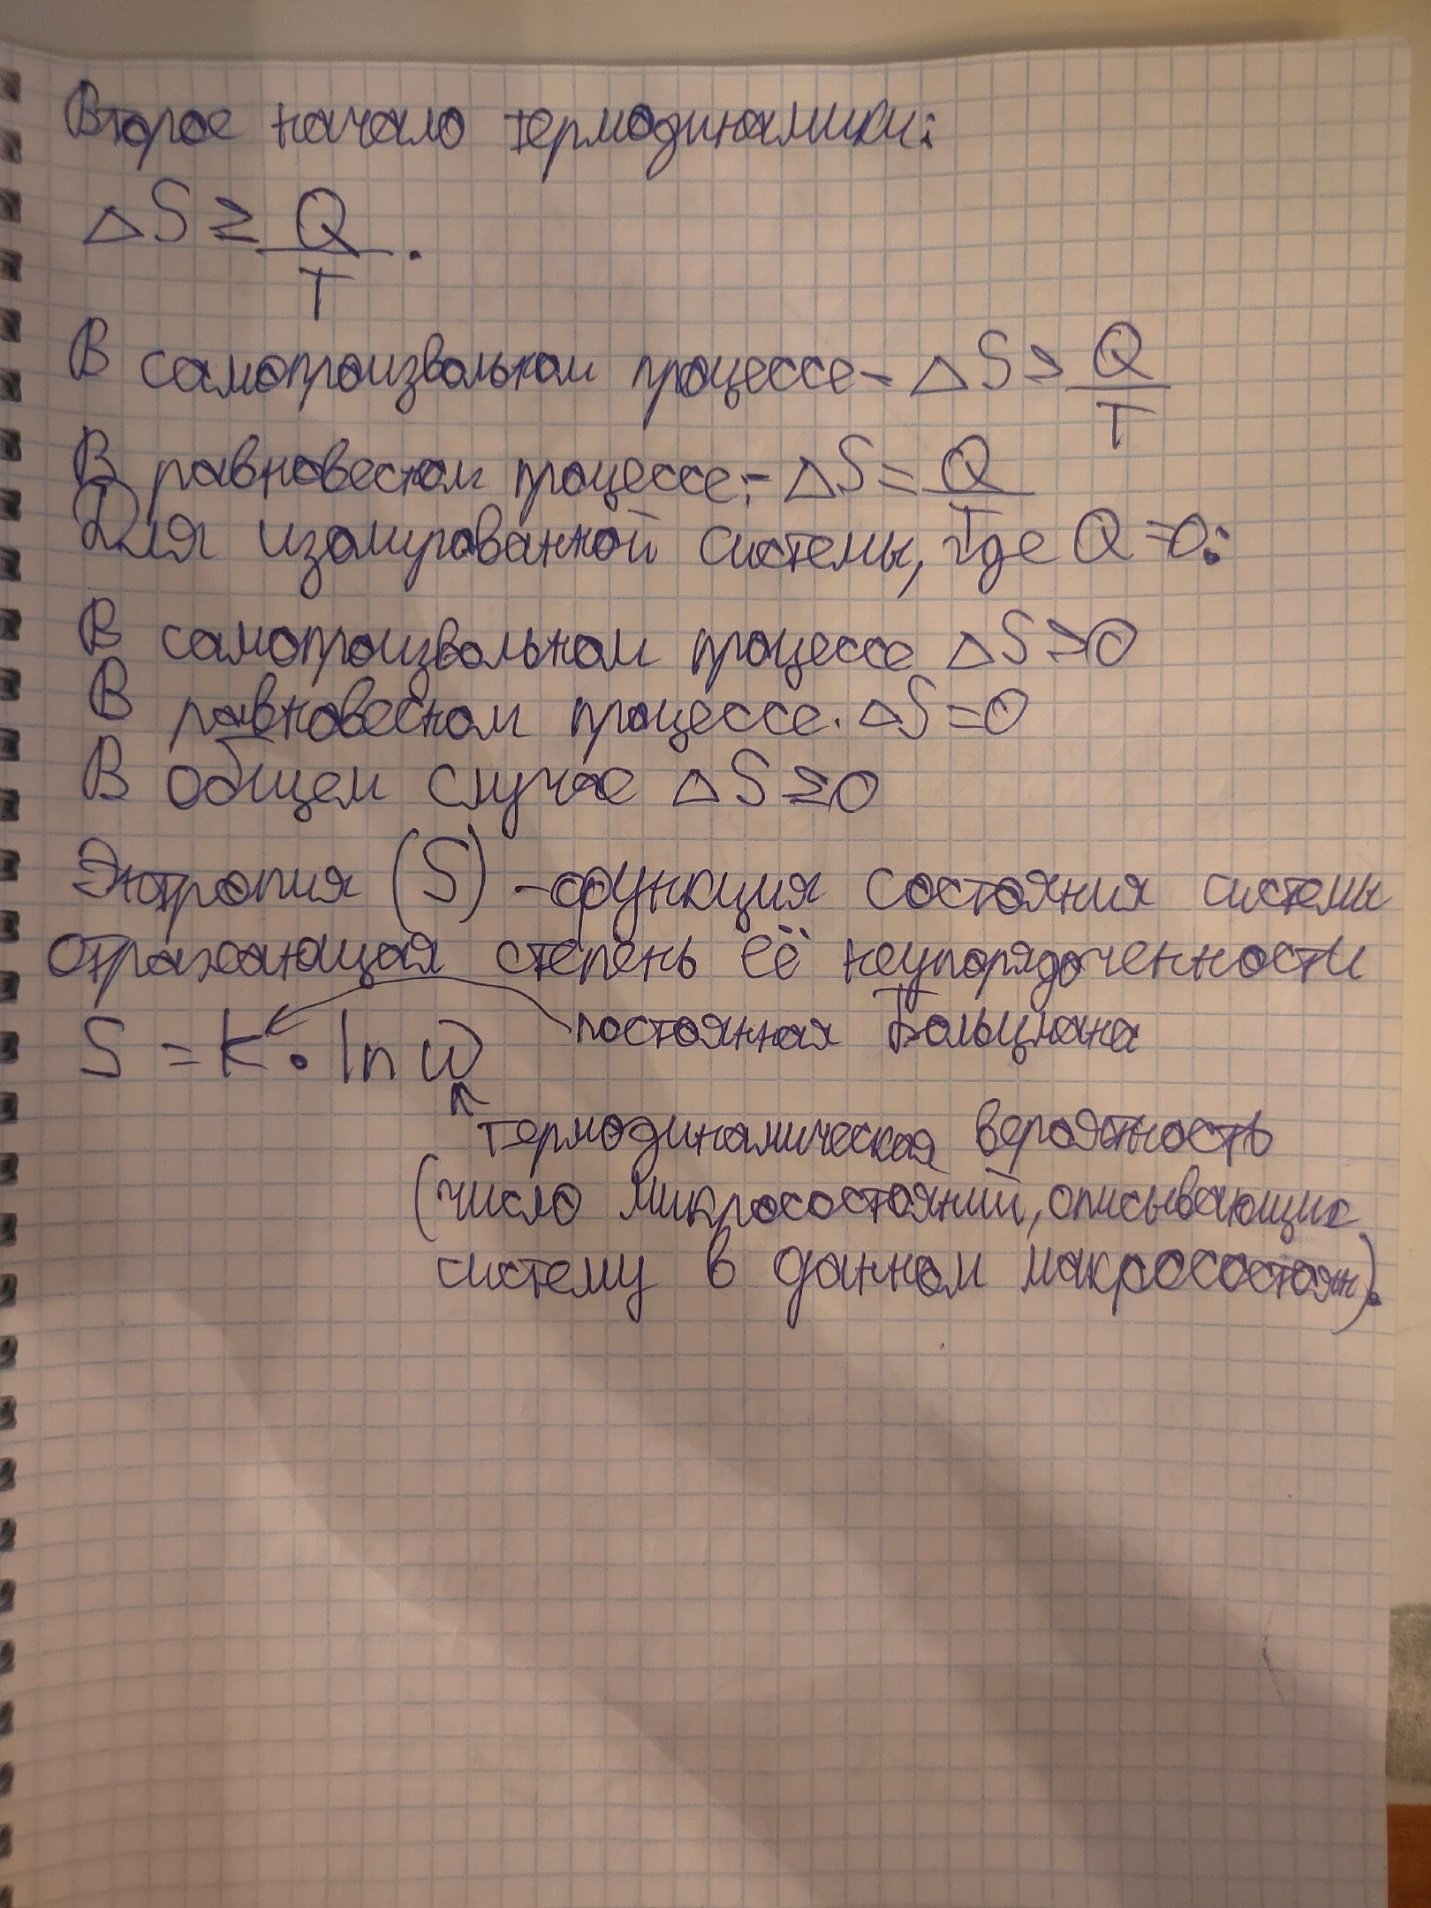 Второе начало термодинамики:
ΔS ≥ Q/T.
В самопроизвольном процессе - ΔS > Q/T
В равновесном процессе:- ΔS = Q/T
Для изолированной системы, где Q = 0:
В самопроизвольном процессе ΔS > 0
В равновесном процессе. ΔS = 0
В общем случае ΔS ≥ 0
Энтропия (S) - функция состояния системы
отражающая степень её неупорядоченности
S = k · ln w
постоянная Больцмана
термодинамическая вероятность
(число микросостояний, описывающих
систему в данном макросостоян).